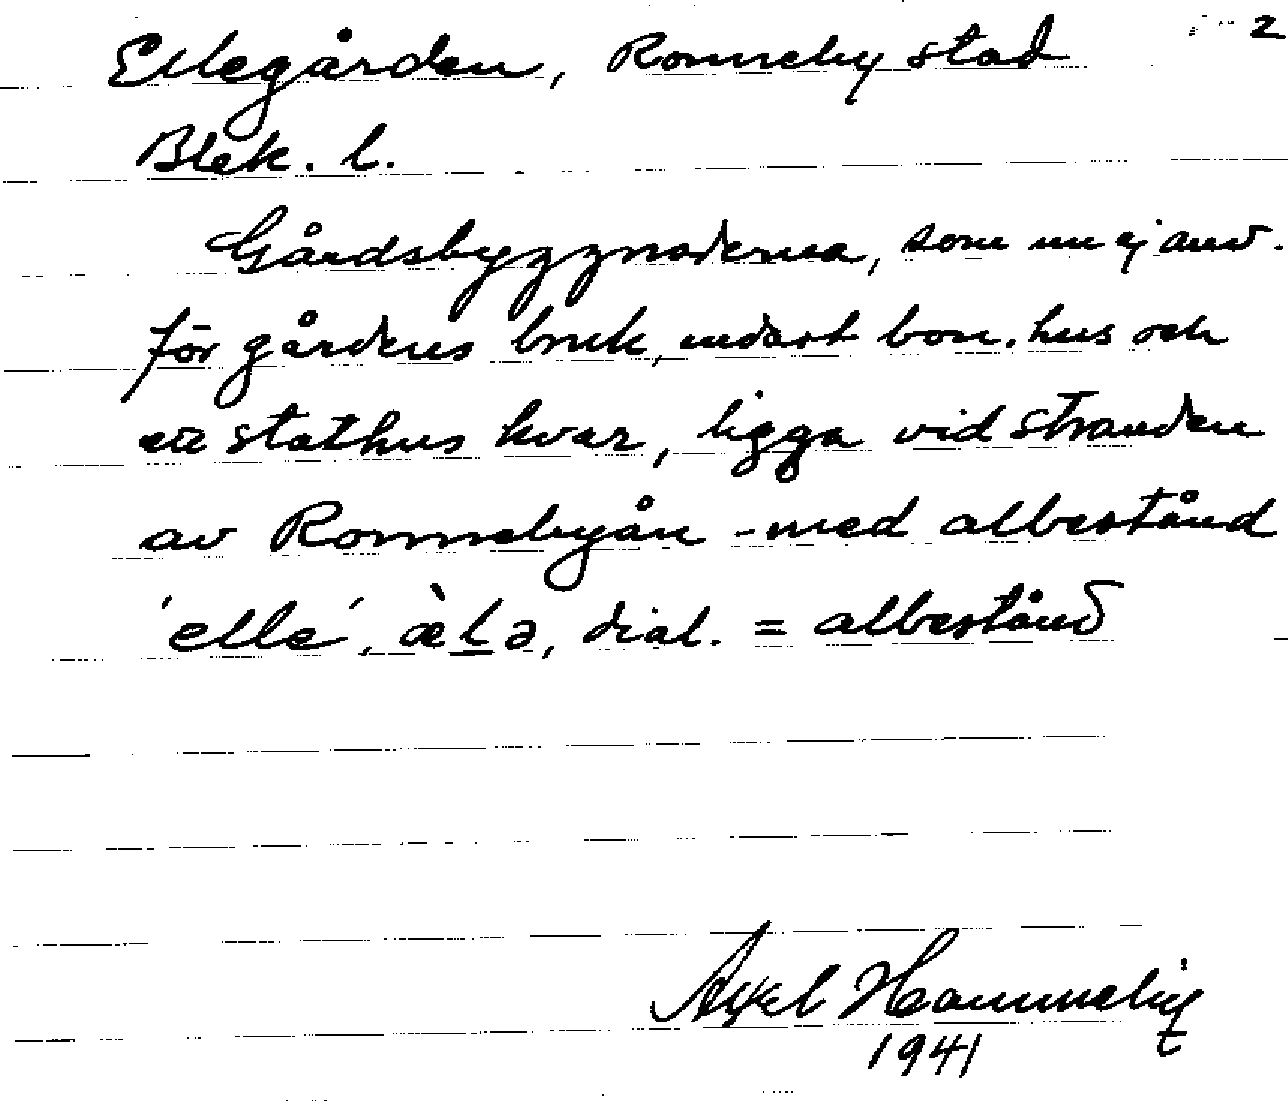 2
Ellegården, Ronneby stad
Blek. l.
Gårdsbyggnaderna, som nu ej anv.
för gårdens bruk, endast bon. hus och
ett stathus kvar, ligga vid stranden
av Ronnebyån - med albestånd
'elle', æ̀lə, dial. = albestånd
Axel
1941